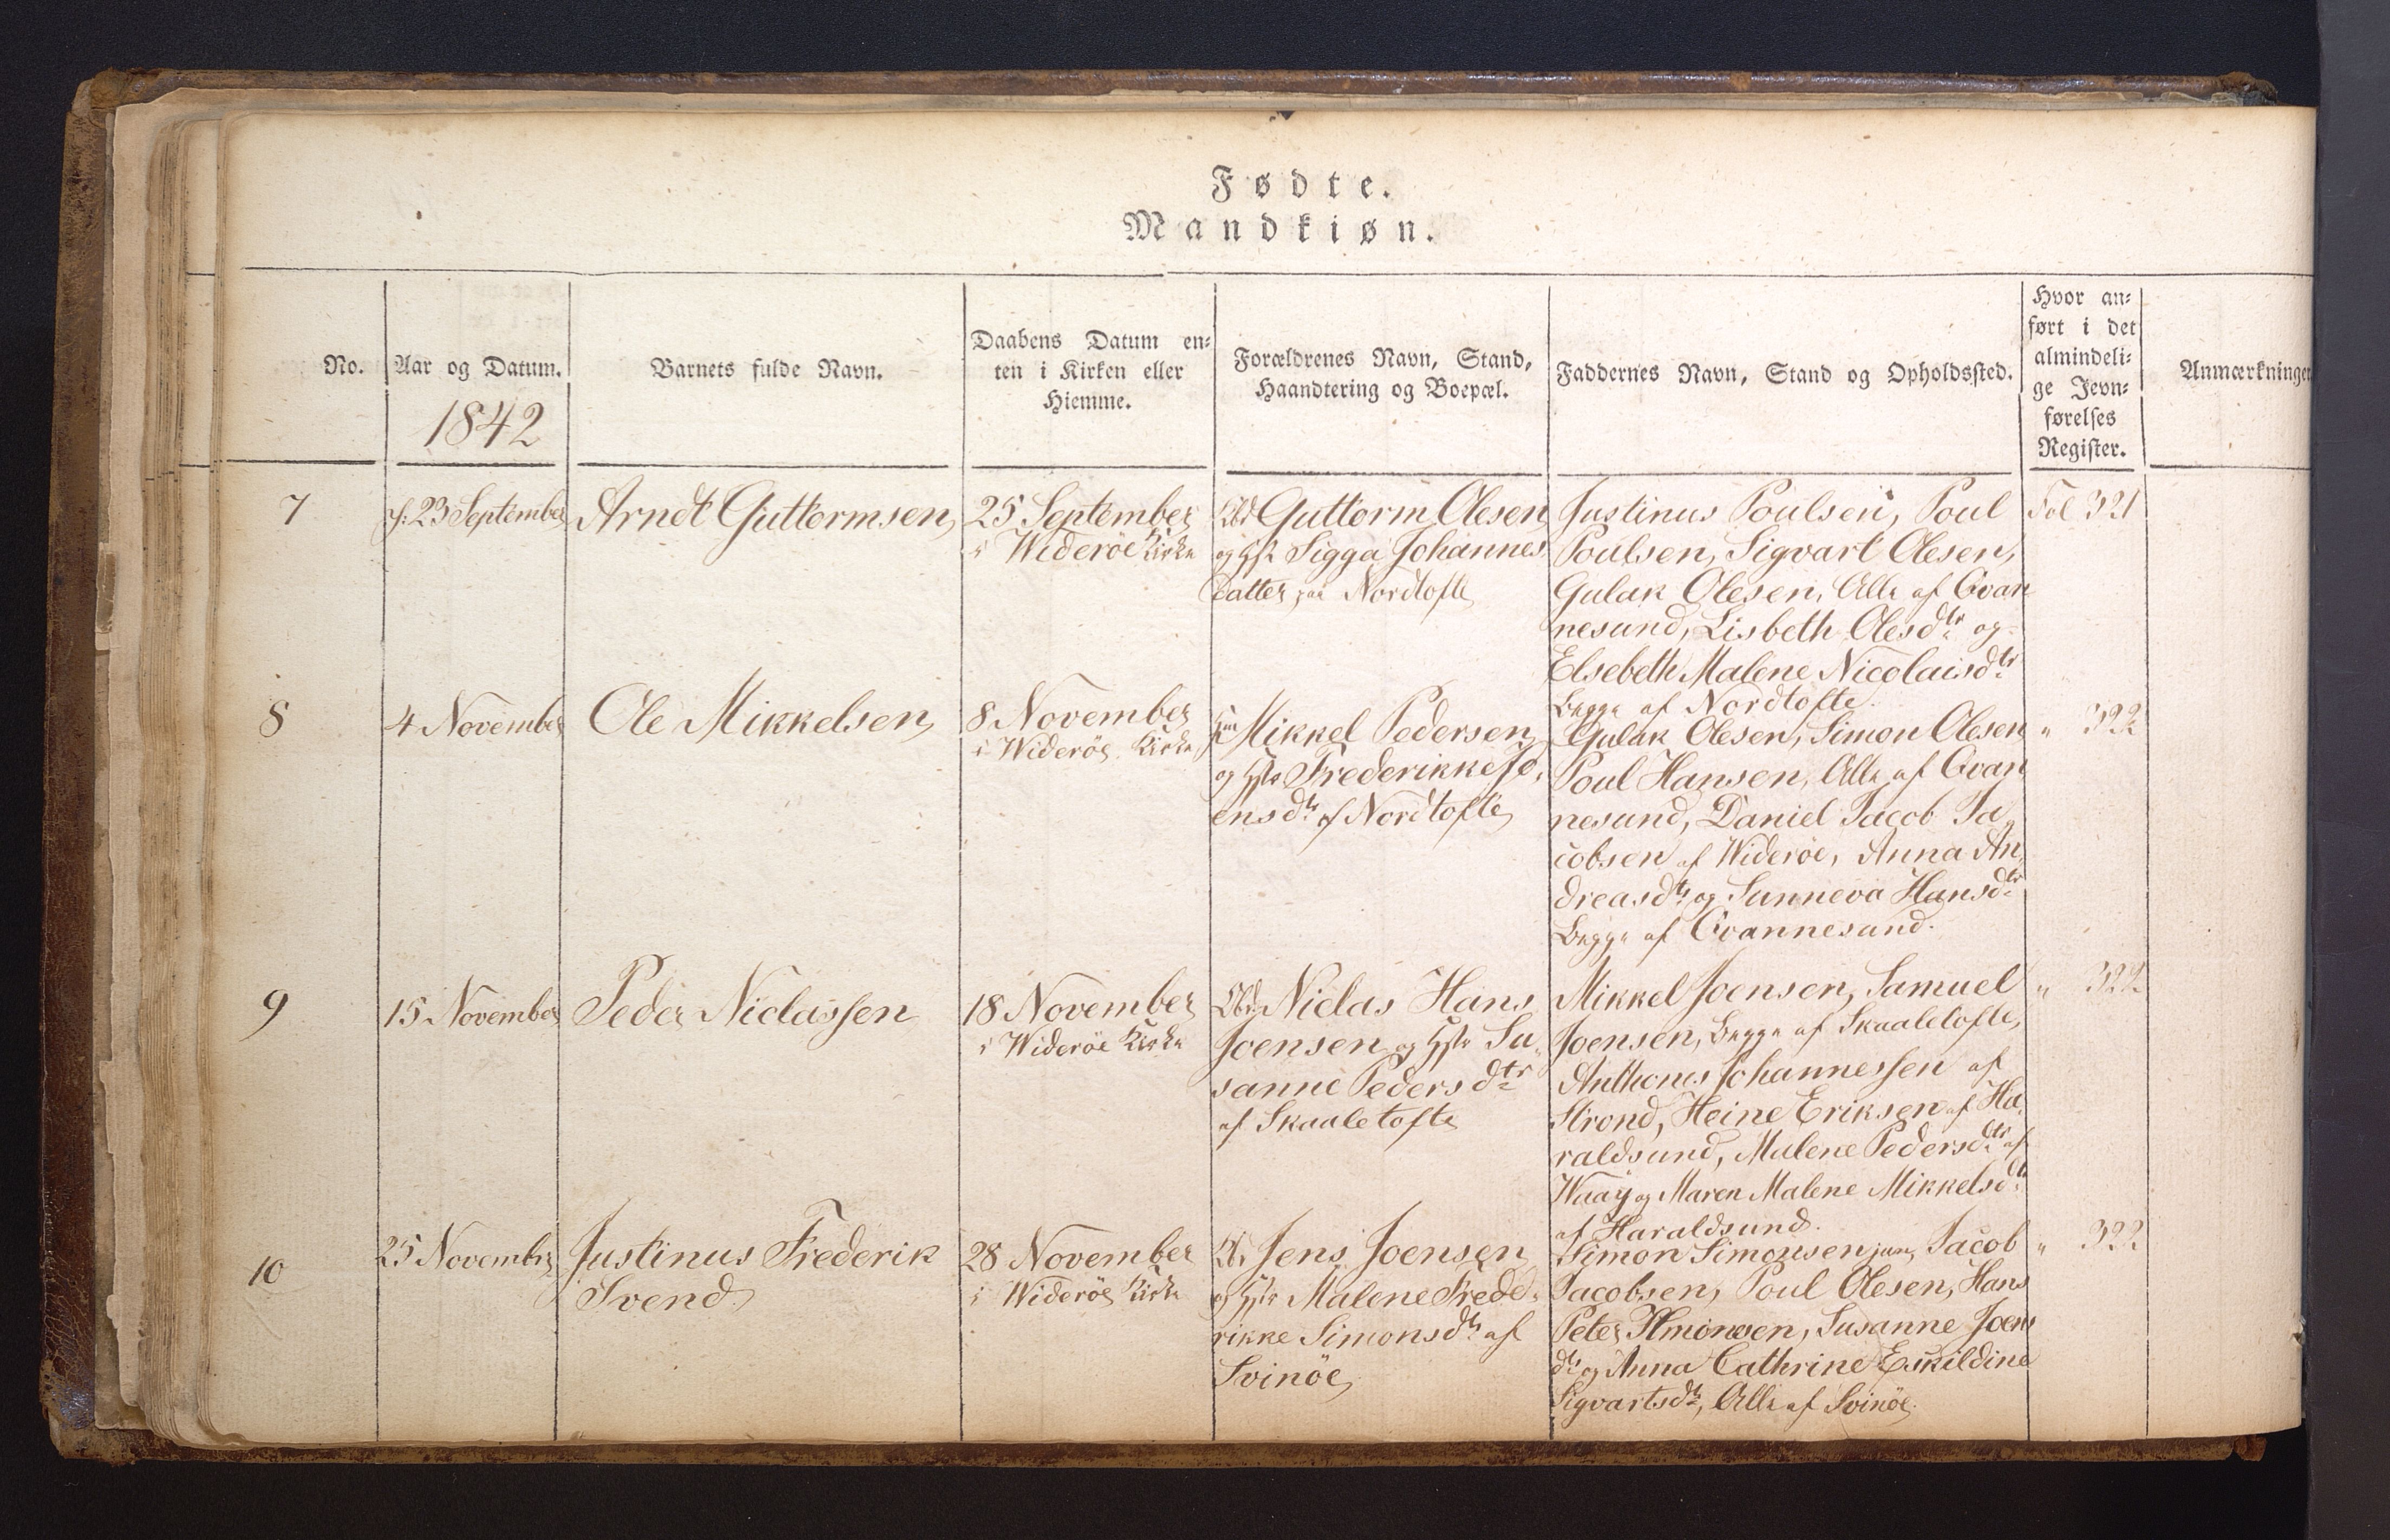 Fødte.
Mandkiøn.
No.
Aar og Datum.
1842
Barnets fulde Navn.
Daabens Datum en-
ten i Kirken eller
Hiemme.
Forældrenes Navn, Stand,
Haandtering og Boepæl.
Faddernes Navn, Stand og Opholdssted.
Hvor an-
ført i det
almindeli-
ge Jevn-
førelses
Register.
Anmærkninger
7
f: 23 September
Arndt Guttormsen
25 September
i Wideröe Kirke
Guttorm Olesen
og Hst Sigga Johannes
Datter paa Nordtofte
Justinus Poulsen, Poul
Poulsen, Sigvart Olesen,
Gulak Olesen, Alle af Qvan
nesund, Lisbeth Olesdtr og
Elsebeth Malene Nicolaisdtr
begge af Nordtofte.
Fol 321
8
4 November
Ole Mikkelsen
8 November
i Wideröe Kirke
Mikkel Pedersen
og Hst Frederikke Jo-
ensdtr af Nordtofte
Gulak Olesen, Simon Olesen
Poul Hansen, Alle af Qvan
nesund, Daniel Jacob Ja
cobsen af Wideröe, Anna An
dreasdtr og Sunneva Hansdtr
begge af Qvannesund.
" 322
9
15 November
Peder Niclassen
18 November
i Wideröe Kirke
Niclas Hans
Joensen og Hst Su
sanne Pedersdtr
af Skaaletofte
Mikkel Joensen, Samuel
Joensen, begge af Skaaletofte,
Anthones Johannessen af
Strond, Heine Eriksen af Ha
raldsund, Malene Pedersdtr af
Waaÿ og Maren Malene Mikkelsdtr
af Haraldsund.
" 322
10
25 November
Justinus Frederik
Svend
28 November
i Wideröe Kirke
Jens Joensen
og Hst Malene Frede-
rikke Simonsdtr af
Svinöe
Simon Simonsen jun, Jacob
Jacobsen, Poul Olesen, Hans
Peter Susanne Joens
dtr og Anna Cathrine Eskildine
Sigvartsdtr, Alle af Svinöe.
" 322